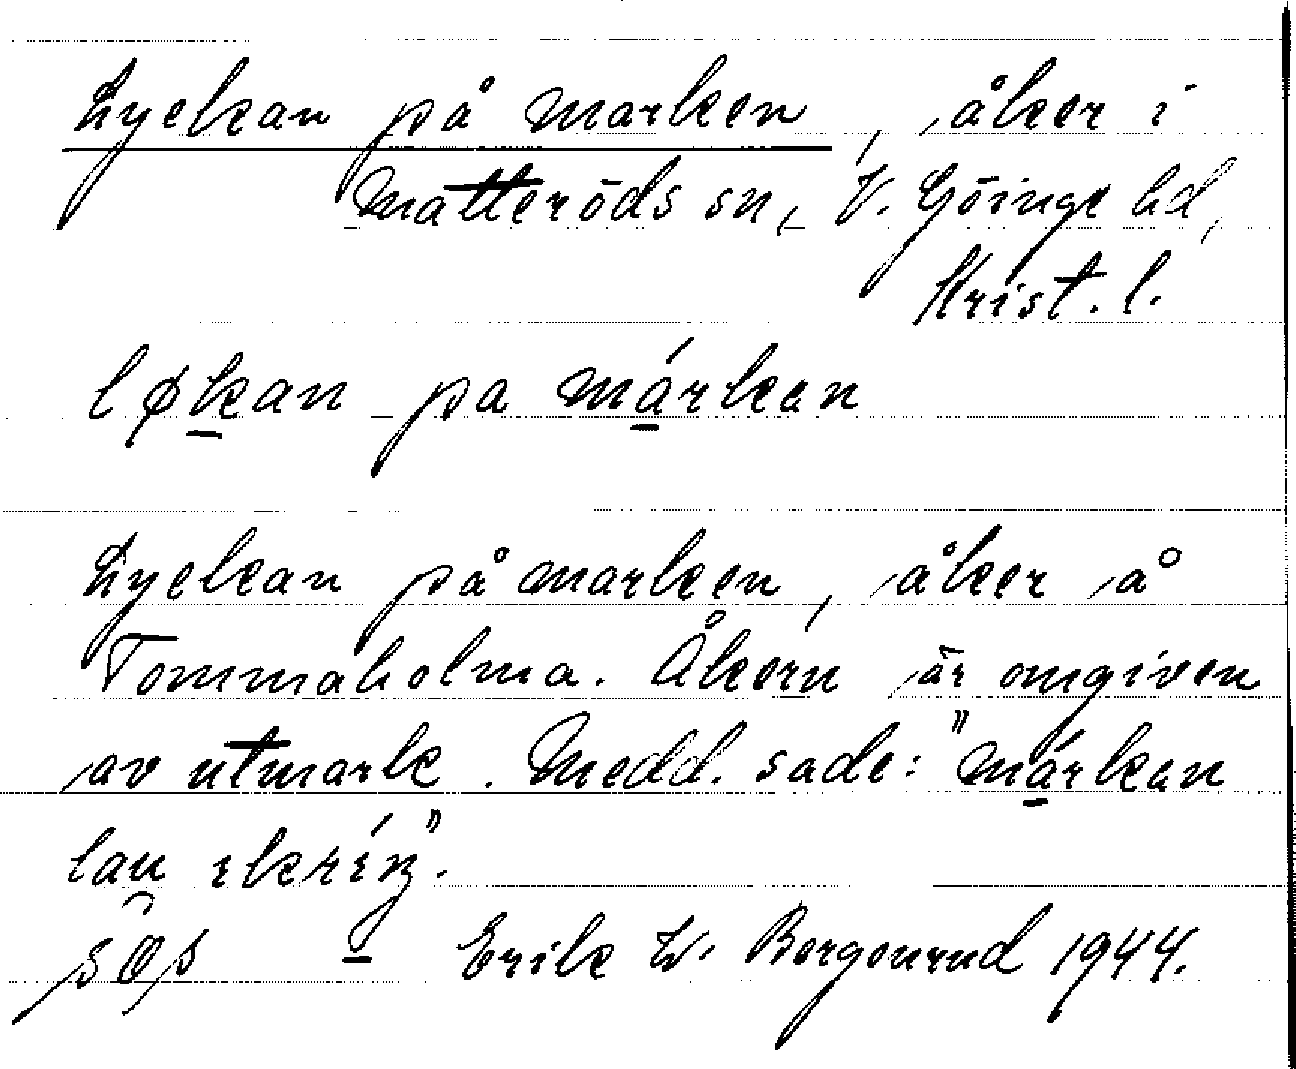 Lyckan på marken, åker i
Matteröds sn, V. Göinge hd,
Krist. l.
løkan pa márkan
Lyckan på marken, åker å
Tommaholma. Åkern är omgiven
av utmark. Medd. sade: "márkan
Erik W. Bergenrud 1944.